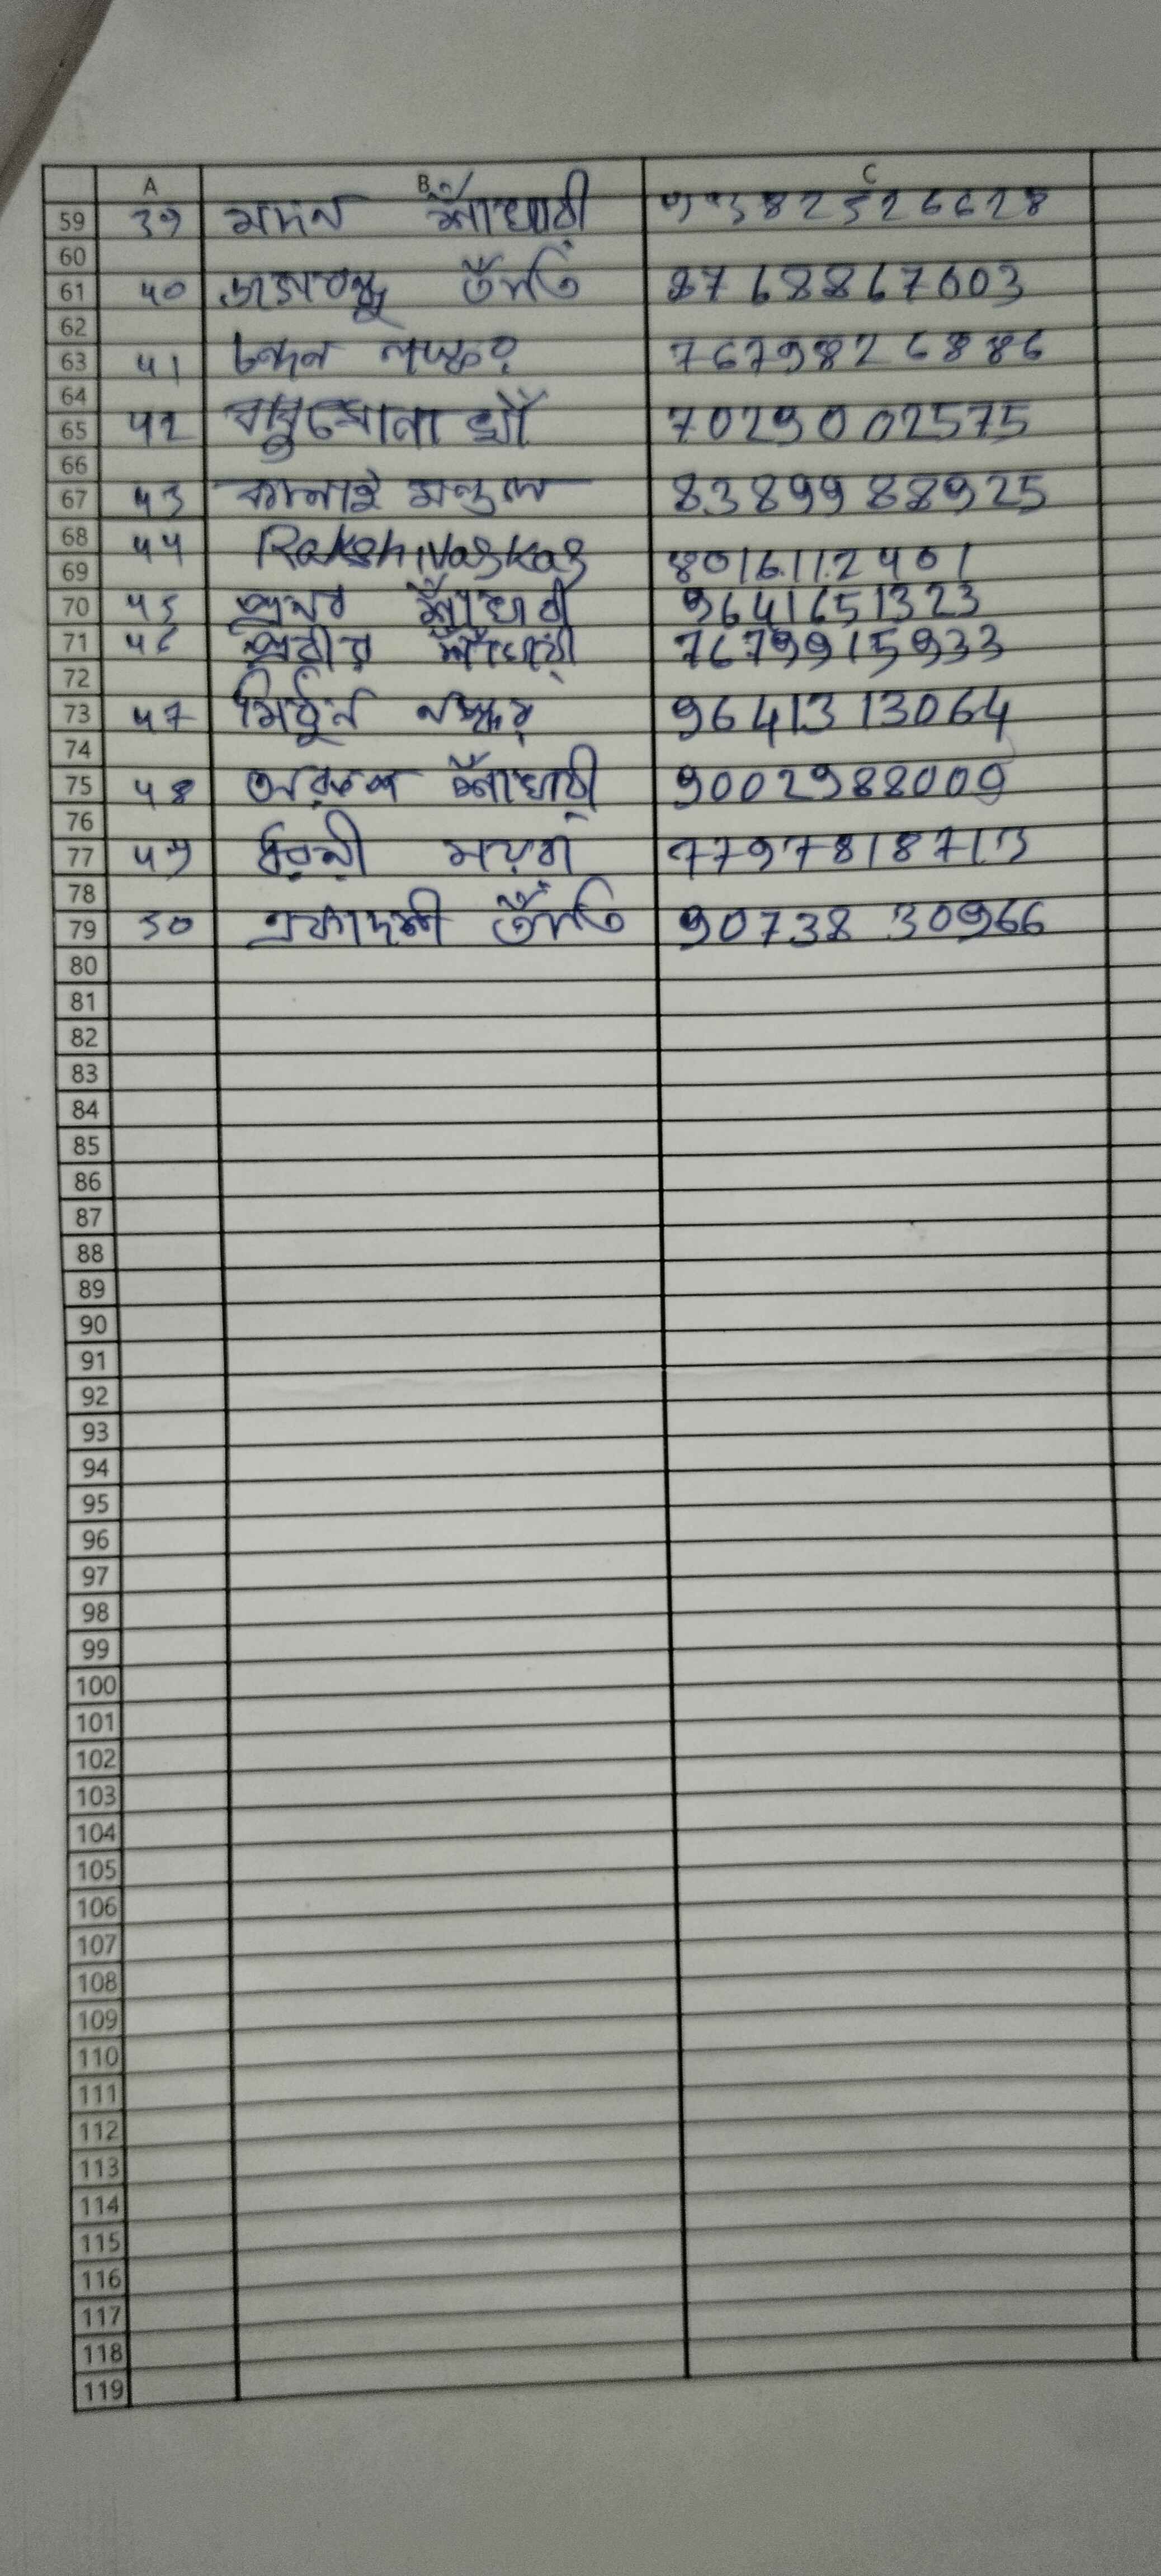 A B C
59 39 মদন শাঁখারী 9382526628
60
61 40 জগবন্ধু তাঁতি 8768867603
62
63 41 চন্দন লস্কর 7679826886
64
65 42 বাবুসোনা খাঁ 7029002575
66
67 43 কানাই মন্ডল 8389988925
68 44 Rakesh Naskar
69 8016112401
70 45 প্রনব শাঁখারী 9641651323
71 46 প্রবীর শাঁখারী 7679915933
72
73 47 মিঠুন নস্কর 9641313064
74
75 48 শাঁখারী 9002988009
76
77 49 ধরনী ময়রা 7797818713
78
79 50 একাদশী তাঁতি 90738 30966
80
81
82
83
84
85
86
87
88
89
90
91
92
93
94
95
96
97
98
99
100
101
102
103
104
105
106
107
108
109
110
111
112
113
114
115
116
117
118
119